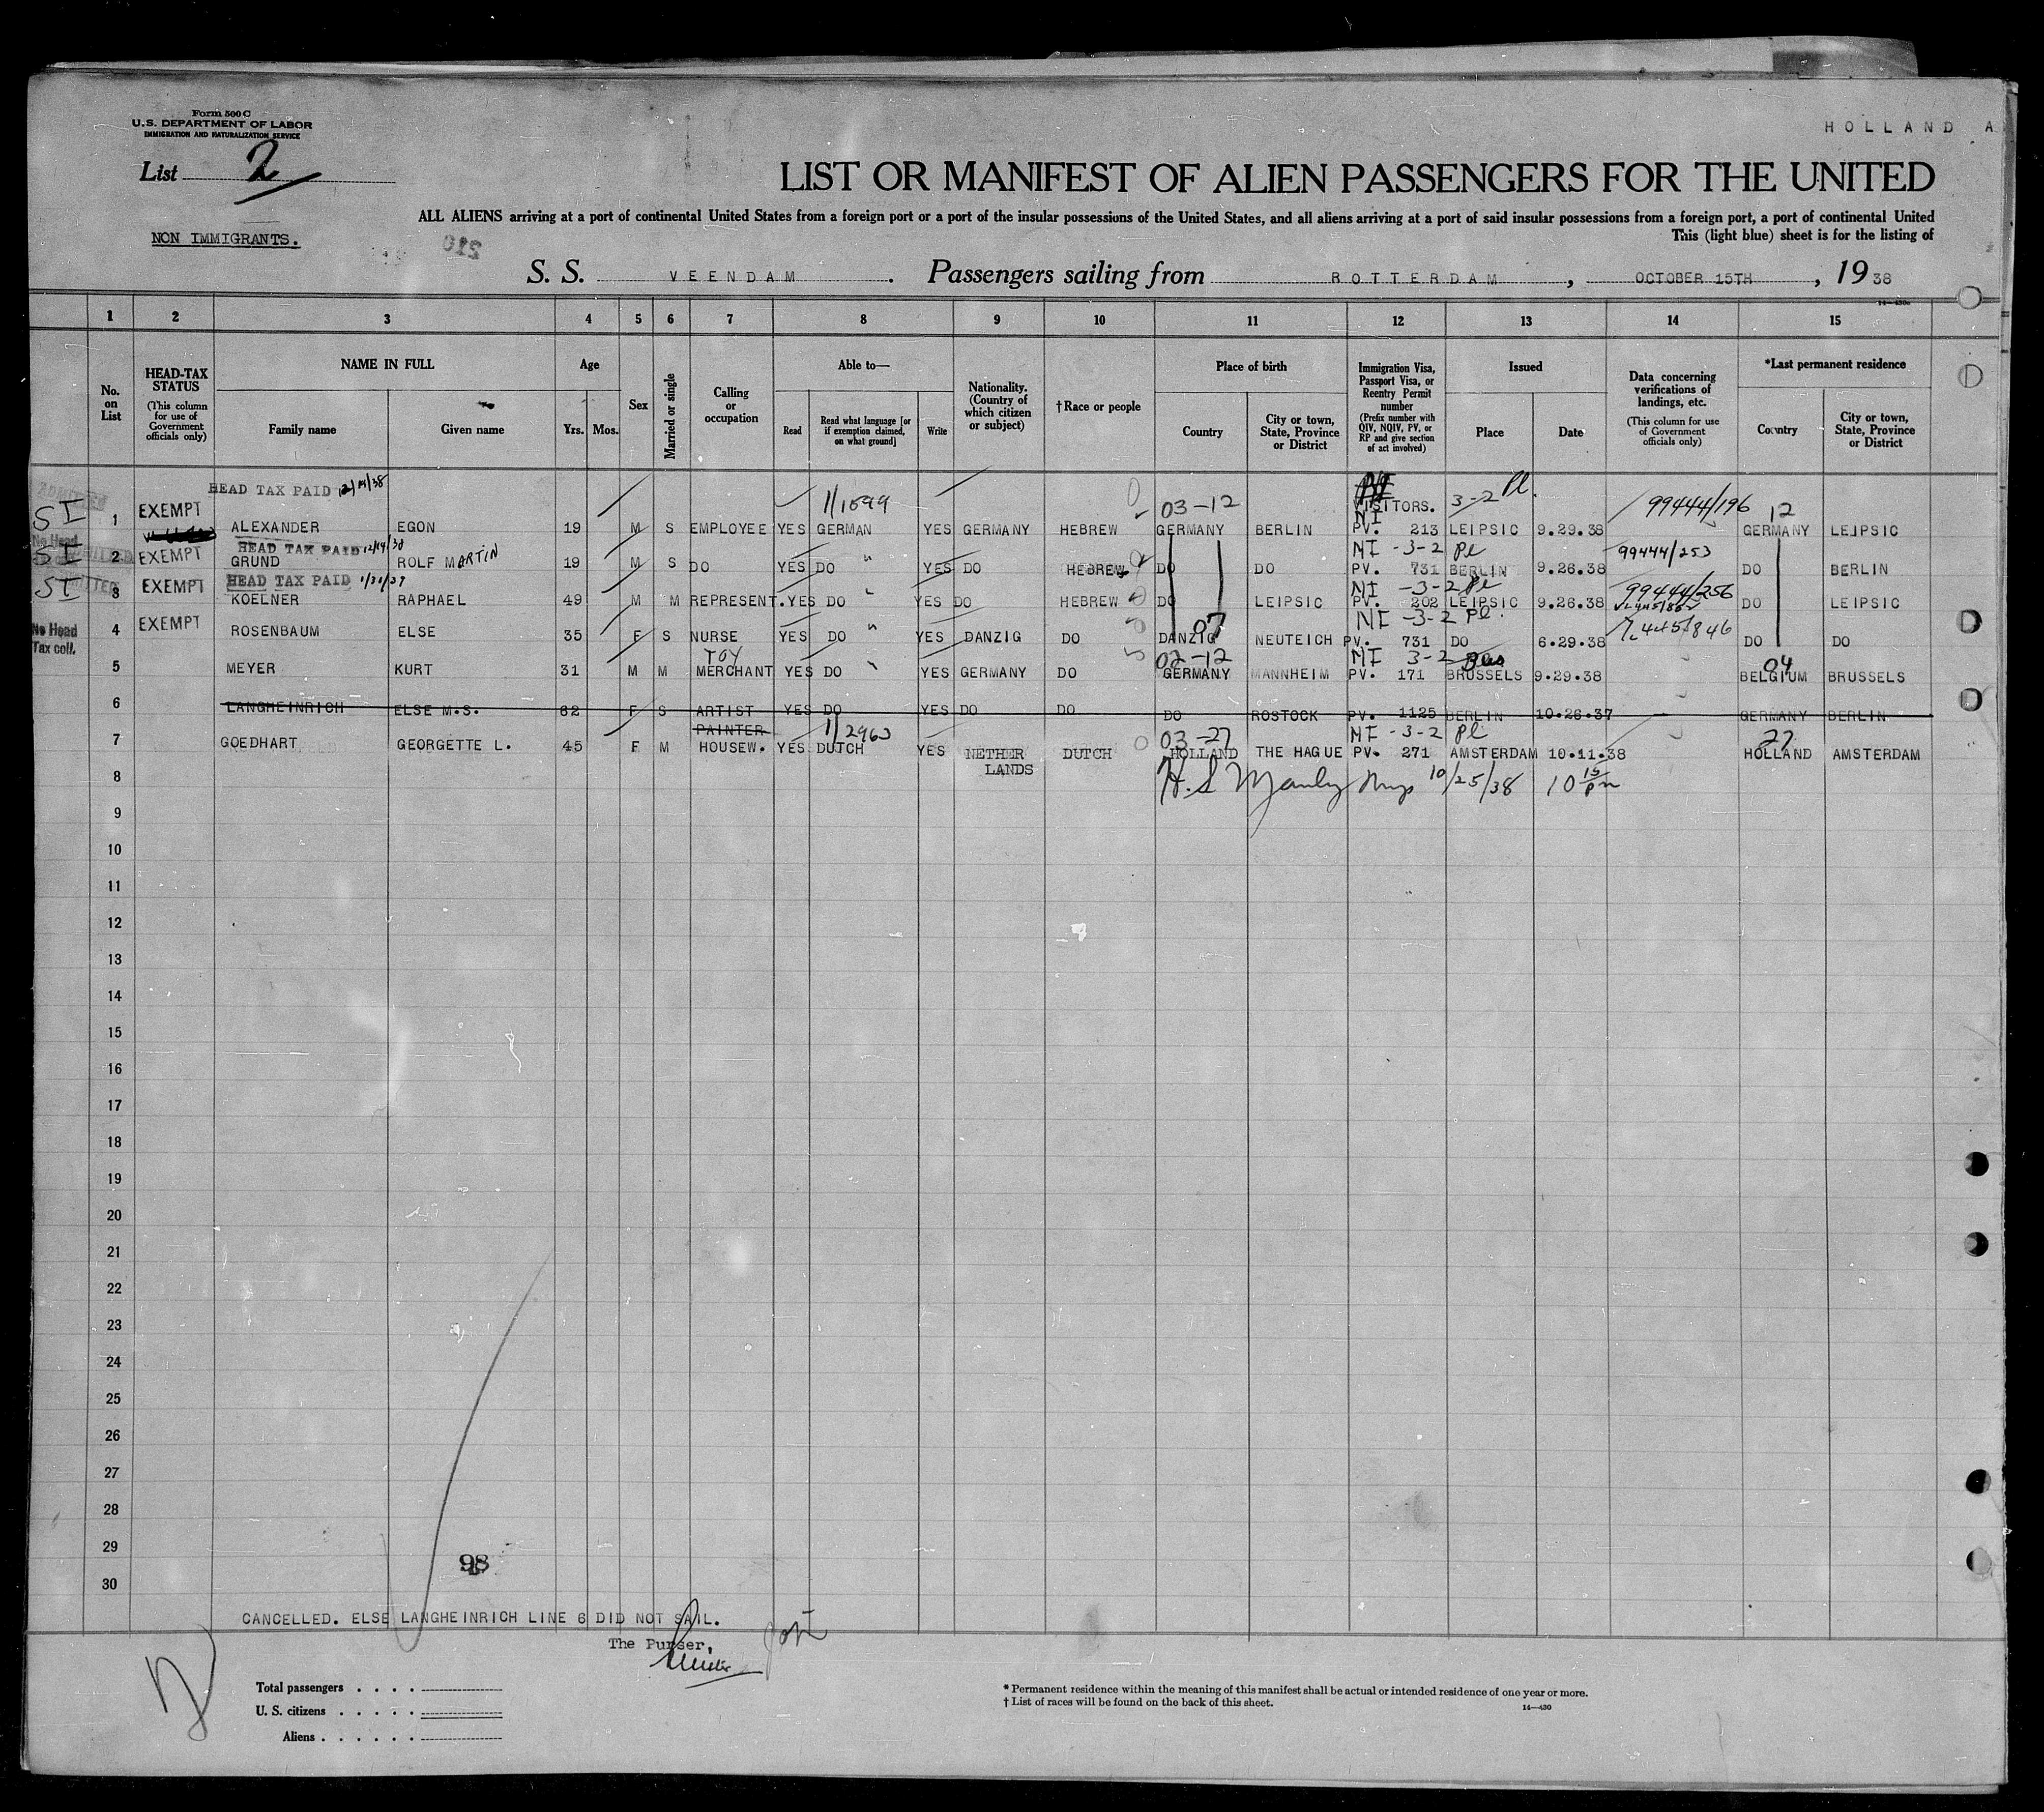 Form 500 C
U.S. DEPARTMENT OF LABOR
IMMIGRATION AND NATURALIZATION SERVICE
HOLLAND A
List 2
LIST OR MANIFEST OF ALIEN PASSENGERS FOR THE UNITED
ALL ALIENS arriving at a port of continental United States from a foreign port or a port of the insular possessions of the United States, and all aliens arriving at a port of said insular possessions from a foreign port, a port of continental United
NON IMMIGRANTS.
This (light blue) sheet is for the listing of
210
S. S. VEENDAM. Passengers sailing from ROTTERDAM, OCTOBER 15TH, 1938
1 2 3 4 5 6 7 8 9 10 11 12 13 14 15
No. on List
HEAD-TAX STATUS (This column for use of Government officials only)
NAME IN FULL
Family name
Given name
Age
Yrs. Mos.
Sex
Married or single
Calling or occupation
Able to—
Read
Read what language [or if exemption claimed, on what ground]
Write
Nationality. (Country of which citizen or subject)
† Race or people
Place of birth
Country
City or town, State, Province or District
Immigration Visa, Passport Visa, or Reentry Permit number (Prefix number with QIV, NQIV, PV, or RP and give section of act involved)
Issued
Place
Date
Data concerning verifications of landings, etc. (This column for use of Government officials only)
*Last permanent residence
Country
City or town, State, Province or District
HEAD TAX PAID 12/14/38
1/1699 03-12 VISITORS. 3-2 Pl. 99444/196 12
SI 1 EXEMPT ALEXANDER EGON 19 M S EMPLOYEE YES GERMAN YES GERMANY HEBREW GERMANY BERLIN NI PV. 213 LEIPSIC 9.29.38 GERMANY LEIPSIC
No Head
HEAD TAX PAID 12/14/38
NI -3-2 Pl 99444/253
SI 2 EXEMPT GRUND ROLF MARTIN 19 M S DO YES DO " YES DO HEBREW DO DO PV. 731 BERLIN 9.26.38 DO BERLIN
HEAD TAX PAID 1/31/39
NI -3-2 Pl 99444/256
SI 3 EXEMPT KOELNER RAPHAEL 49 M M REPRESENT. YES DO " YES DO HEBREW DO LEIPSIC PV. 202 LEIPSIC 9.26.38 DO LEIPSIC
NI -3-2 Pl.
No Head Tax coll. 4 EXEMPT ROSENBAUM ELSE 35 F S NURSE YES DO " YES DANZIG DO DANZIG 07 NEUTEICH PV. 731 DO 6.29.38 DO DO
TOY 02-12 NI 3-2 04
5 MEYER KURT 31 M M MERCHANT YES DO " YES GERMANY DO GERMANY MANNHEIM PV. 171 BRUSSELS 9.29.38 BELGIUM BRUSSELS
6 LANGHEINRICH ELSE M.S. 62 F S ARTIST YES DO YES DO DO DO ROSTOCK PV. 1125 BERLIN 10.26.37 GERMANY BERLIN
PAINTER 1/2963 03-27 NI -3-2 Pl 27
7 GOEDHART GEORGETTE L. 45 F M HOUSEW. YES DUTCH YES NETHER LANDS DUTCH HOLLAND THE HAGUE PV. 271 AMSTERDAM 10.11.38 HOLLAND AMSTERDAM
8 10/25/38 10 15 pm
9
10
11
12
13
14
15
16
17
18
19
20
21
22
23
24
25
26
27
28
29
98
30
CANCELLED. ELSE LANGHEINRICH LINE 6 DID NOT SAIL.
The Purser,
Total passengers
U. S. citizens
Aliens
* Permanent residence within the meaning of this manifest shall be actual or intended residence of one year or more.
† List of races will be found on the back of this sheet.
14—430